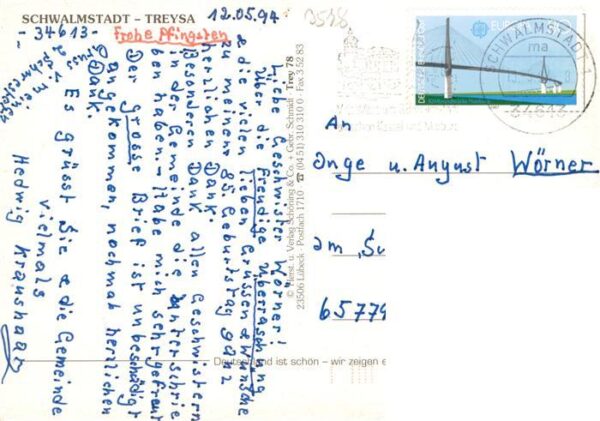 SCHWALMSTADT – TREYSA
-34613-
12.05.94
Frohe Pfingsten
Liebe Geschwister Wörner!
Über die freudige Überraschung
& die vielen lieben Grüssen & Wünsche
zu meinem 85. Geburtstag ganz
herzlichen Dank.
Besonderen Dank allen Geschwistern
in der Gemeinde die unterschrie
ben haben - Habe mich sehr gefreut
Der grosse Brief ist unbeschädigt
angekommen, nochmal herzlichen
Dank.
Es grüsst Sie & die Gemeinde
vielmals
Hedwig Kraushaar
Gruss v.
© Herst. u. Verlag Schöning & Co. + Gebr. Schmidt · Trey 78
23506 Lübeck · Postfach 1710 · ☎ (04 51) 310 310 0 · Fax 3 52 83
Deutschland ist schön – wir zeigen e
3538
EUROPA
SCHWALMSTADT 1
ma
34613
An
Inge u. August Wörner
am
65779